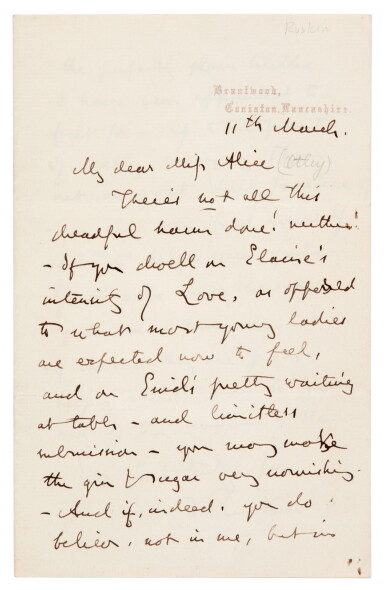 Ruskin
Brantwood,
Coniston, Lancashire.
11th March.
My dear Miss Alice (Utley)
There's not all this
dreadful harm done! neither!
- If you dwell on Elaine's
intensity of Love, as opposed
to what most young ladies
are expected now to feel,
and on Enid's pretty waiting
at table - and limitless
submission - you may make
the gin & sugar very nourishing.
- And if, indeed, you do
believe, not in me, but in